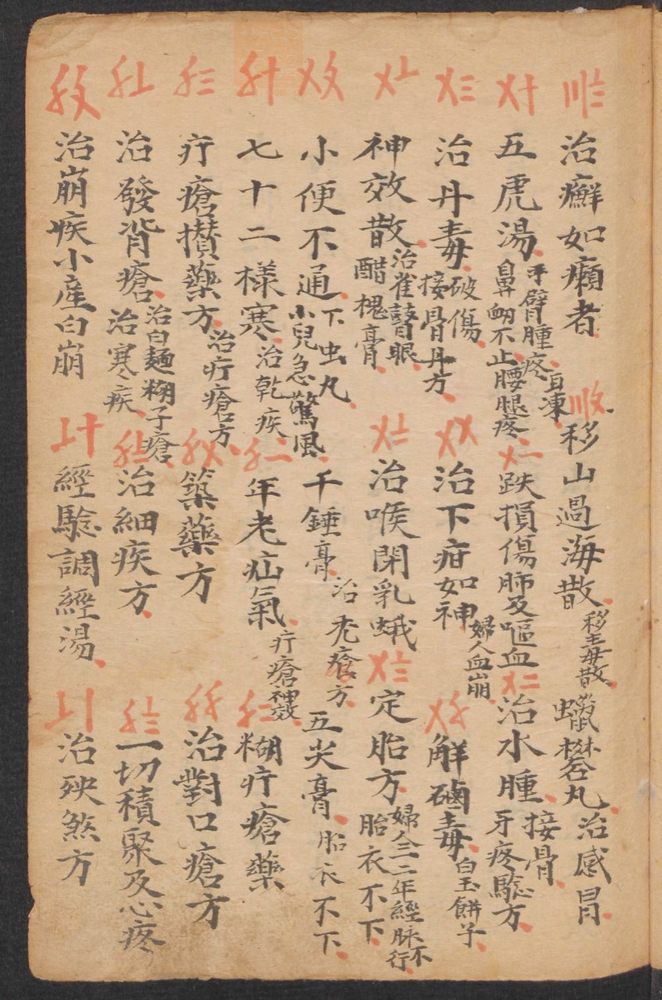 治癬如癩者 移山過海散 移毒散 蠟礬丸 治感冒
五虎湯 手臂腫疼 鼻衂不止 腰腿疼 跌損傷肺及嘔血 治水腫 接骨 牙疼驗方
治丹毒 破傷 接骨丹方 治下疳如神 婦人血崩 解磠毒 白玉餅子
神效散 治雀瞽眼 醋槐膏 治喉閉乳蛾 定胎方 婦人三二年經脉不行 胎衣不下
小便不通 下虫丸 小兒急驚風 千錘膏 治禿瘡方 五尖膏 胎衣不下
七十二樣寒 治乾疾 年老疝氣 疔瘡神效 糊疔瘡藥
疔瘡攅藥方 治疔瘡方 箓藥方 治對口瘡方
治發背瘡 治白麵糊子瘡 治寒疾 治細疾方 一切積聚及心疼
治崩疾小產白崩 經驗調經湯 治殃煞方